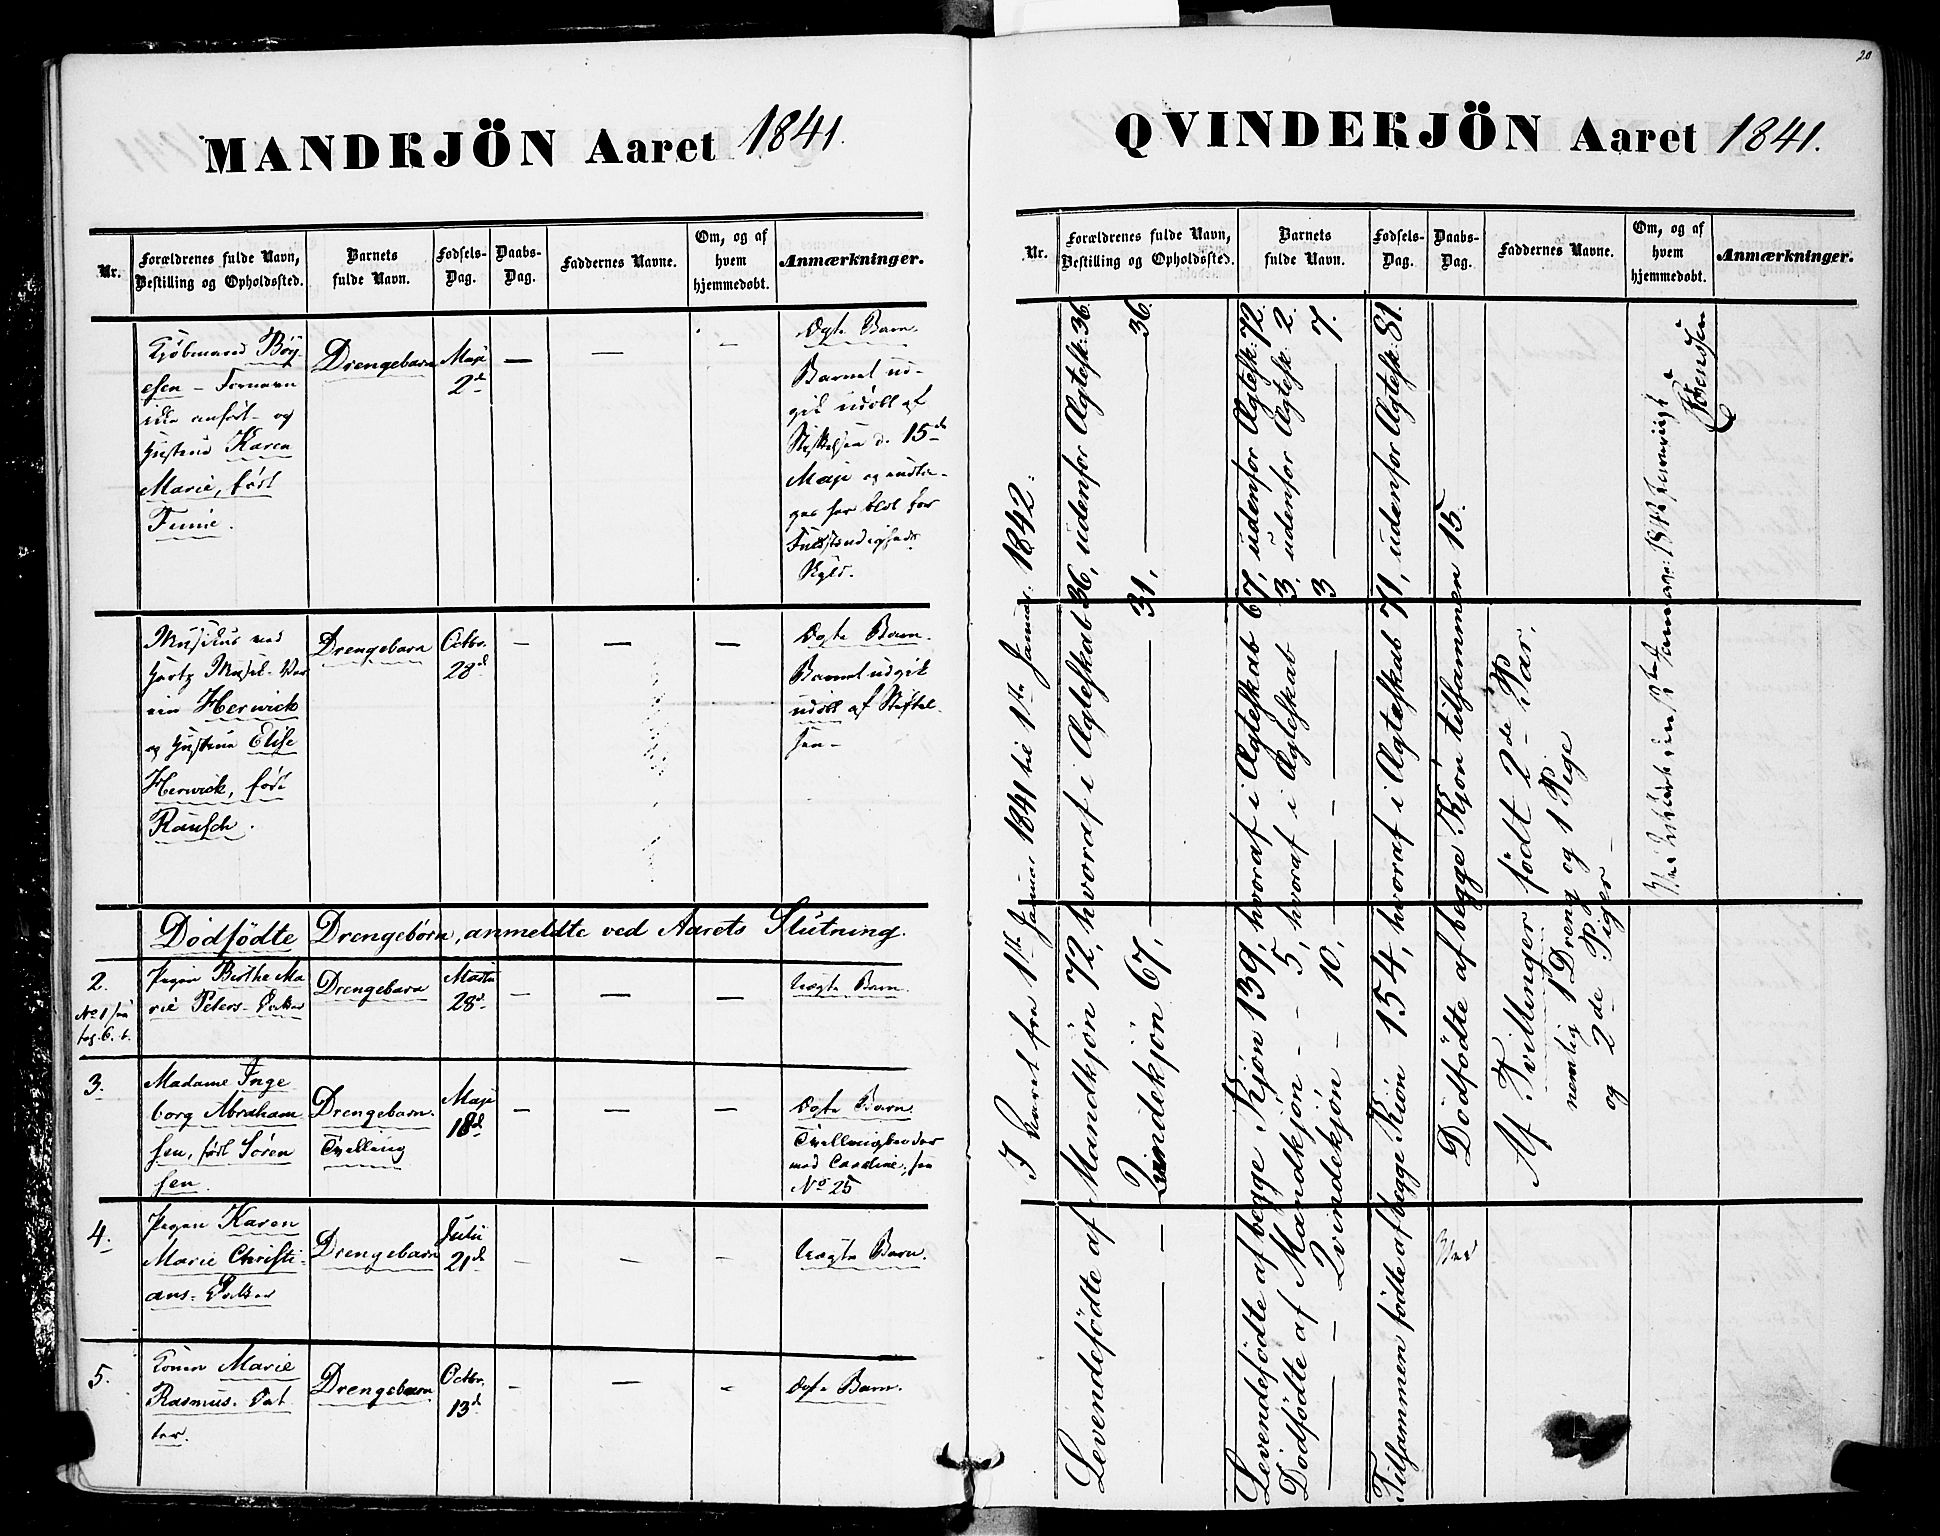 20
MANDKJÖN Aaret 1841.
Nr.
Forældrenes fulde Navn,
Bestilling og Opholdssted.
Barnets
fulde Navn.
Fødsels-
Dag.
Daabs-
Dag.
Faddernes Navne.
Om, og af
hvem
hjemmedøbt.
Anmærkninger.
Kjøbmand Böy
esen – Fornavn
ikke anført – og
Hustrue Karen
Marie, født
Drengebarn
Maji
2d
— — —
Ægte Barn.
Barnet ud-
gik udøbt af
Stiftelsen d. 15de
Maji og
Skyld.
Musikus ved
Musik-
Herwick
og Hustrue Elise
Herwick, født
Rausch.
Drengebarn
Octbr.
28d
— — —
Ægte Barn.
Barnet udgik
udöbt af Stiftel-
sen –
Dödfödte Drengebörn, anmeldte ved Aarets Slutning.
2.
No 1 see
pag. 6. b.
Pigen Birthe Ma
rie Peters-Datter
Drengebarn
Marts
28d
— — —
Uægte Barn.
3.
Madame Inge
borg Abraham
sen, født Sören
sen.
Drengebarn.
Tvilling
Maji
18d
— — —
Ægte Barn.
med Caroline, see
No 25
4.
Pigen Karen
Marie Christi-
ans-Datter
Drengebarn
Julii
21d
— — —
Uægte Barn.
5.
Konen Marie
Rasmus-Dat
ter.
Drengebarn
Octbr.
13d
— — —
Ægte Barn.
QVINDEKJÖN Aaret 1841.
Nr.
Forældrenes fulde Navn,
Bestilling og Opholdssted.
Barnets
fulde Navn.
Fødsels-
Dag.
Daabs-
Dag.
Faddernes Navne.
Om, og af
hvem
hjemmedøbt.
Anmærkninger.
I Aaret fra 1ste Januar 1841 til 1ste Januar 1842:
Levendefödte af Mandkjön 72, hvoraf i Ægteskab 36, udenfor Ægtesk: 36.
— — Qvindekjön 67, — — 31, — 36.
Levendefödte af begge Kjön 139, hvoraf i Ægteskab 67, udenfor Ægtesk: 72.
Dödfödte af Mandkjön - - 5, hvoraf i Ægteskab 3, udenfor Ægtesk: 2.
— — Qvindekjön - - 10, — — 3 — 7.
Tilsammen födte af begge Kiön 154, hvoraf i Ægteskab 71, udenfor Ægtesk: 81.
Dödfödte af begge Kjön tilsammen 15.
Af Tvillinger födt 2de Par,
nemlig 1 Dreng og 1 Pige
og 2de Piger –